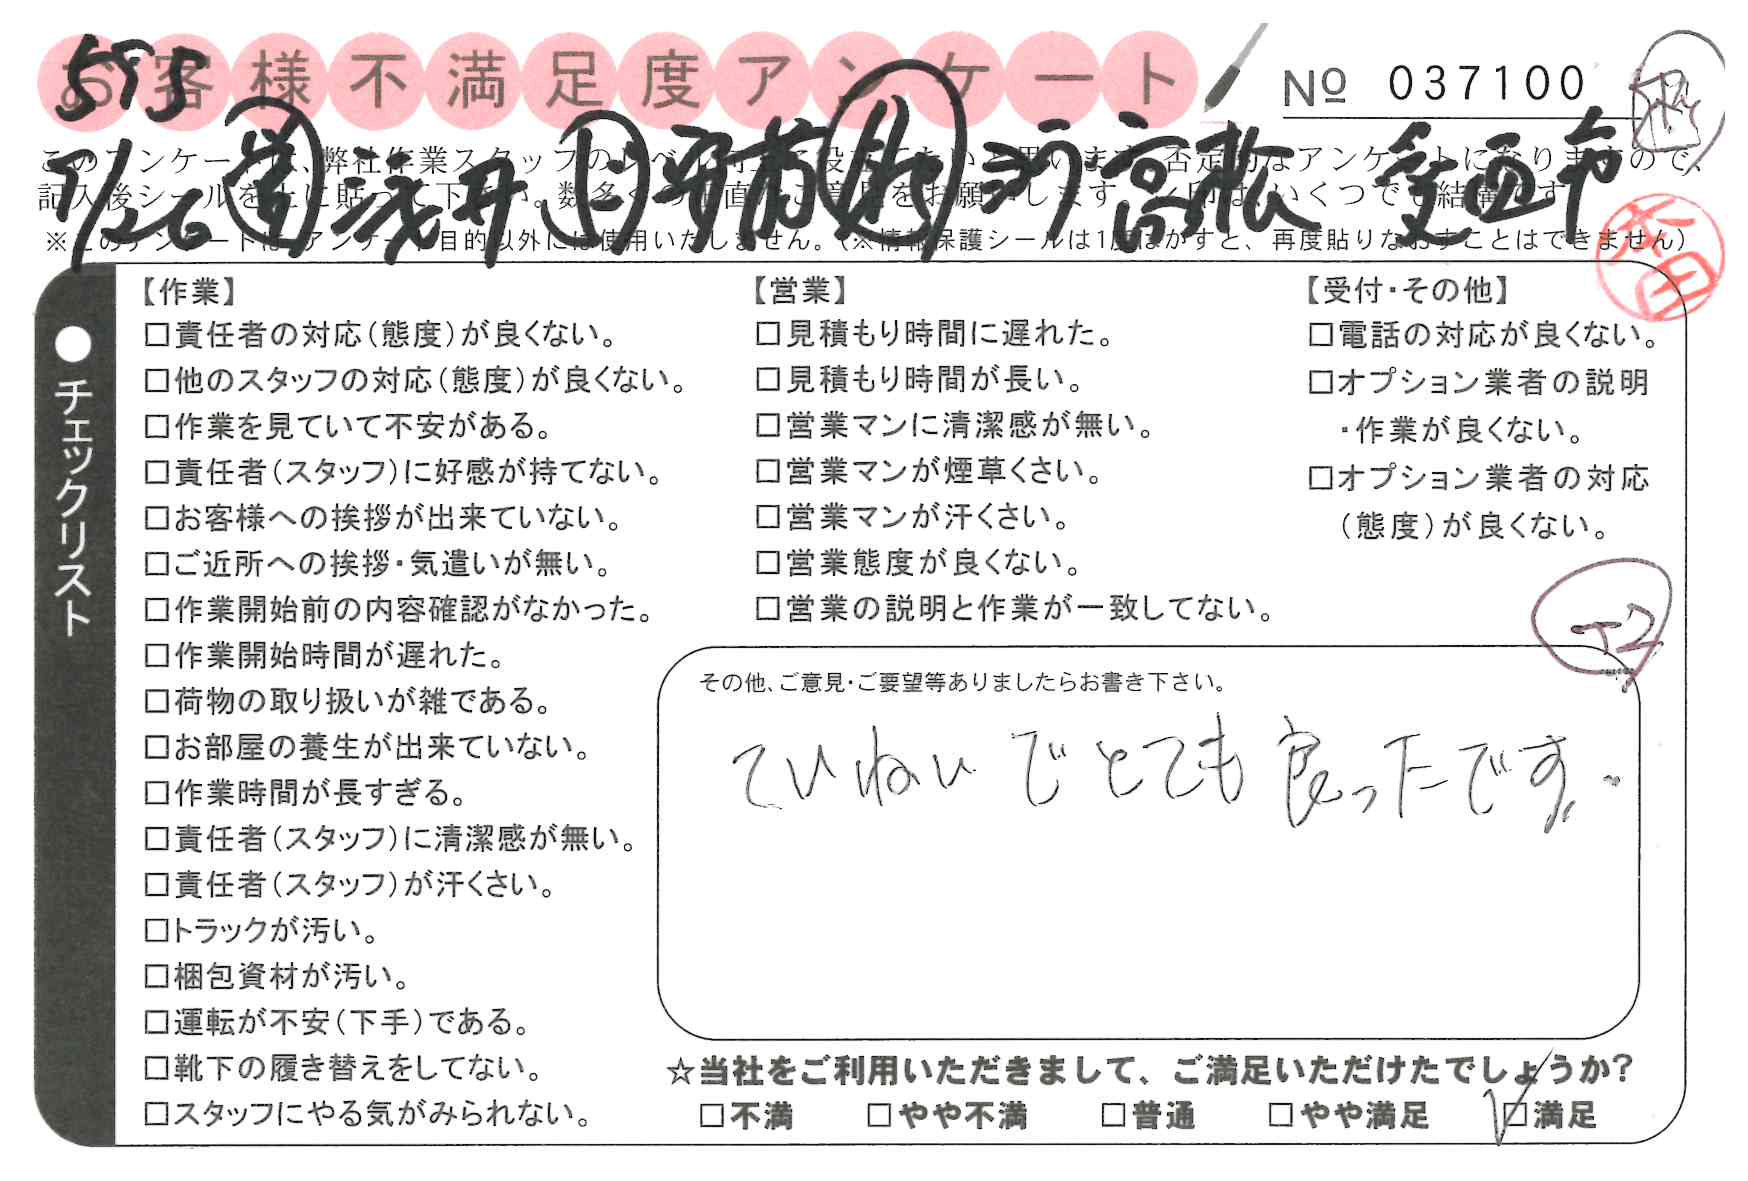 お客様不満足度アンケート
No 037100
595
7/26 浅井 上 安前 河 高松 愛西市
このアンケートは、弊社作業スタッフのレベル向上に役立てたいと思います。否定的なアンケートになりますので、
記入後シールを上に貼って下さい。数多くの正直なご意見をお願いします。✓印は、いくつでも結構です。
※このアンケートは、アンケート目的以外には使用いたしません。(※情報保護シールは1度はがすと、再度貼りなおすことはできません)
●チェックリスト
【作業】
□責任者の対応(態度)が良くない。
□他のスタッフの対応(態度)が良くない。
□作業を見ていて不安がある。
□責任者(スタッフ)に好感が持てない。
□お客様への挨拶が出来ていない。
□ご近所への挨拶・気遣いが無い。
□作業開始前の内容確認がなかった。
□作業開始時間が遅れた。
□荷物の取り扱いが雑である。
□お部屋の養生が出来ていない。
□作業時間が長すぎる。
□責任者(スタッフ)に清潔感が無い。
□責任者(スタッフ)が汗くさい。
□トラックが汚い。
□梱包資材が汚い。
□運転が不安(下手)である。
□靴下の履き替えをしてない。
□スタッフにやる気がみられない。
【営業】
□見積もり時間に遅れた。
□見積もり時間が長い。
□営業マンに清潔感が無い。
□営業マンが煙草くさい。
□営業マンが汗くさい。
□営業態度が良くない。
□営業の説明と作業が一致してない。
【受付・その他】
□電話の対応が良くない。
□オプション業者の説明
・作業が良くない。
□オプション業者の対応
(態度)が良くない。
その他、ご意見・ご要望等ありましたらお書き下さい。
ていねいでとても良ったです。
☆当社をご利用いただきまして、ご満足いただけたでしょうか?
□不満 □やや不満 □普通 □やや満足 ☑満足